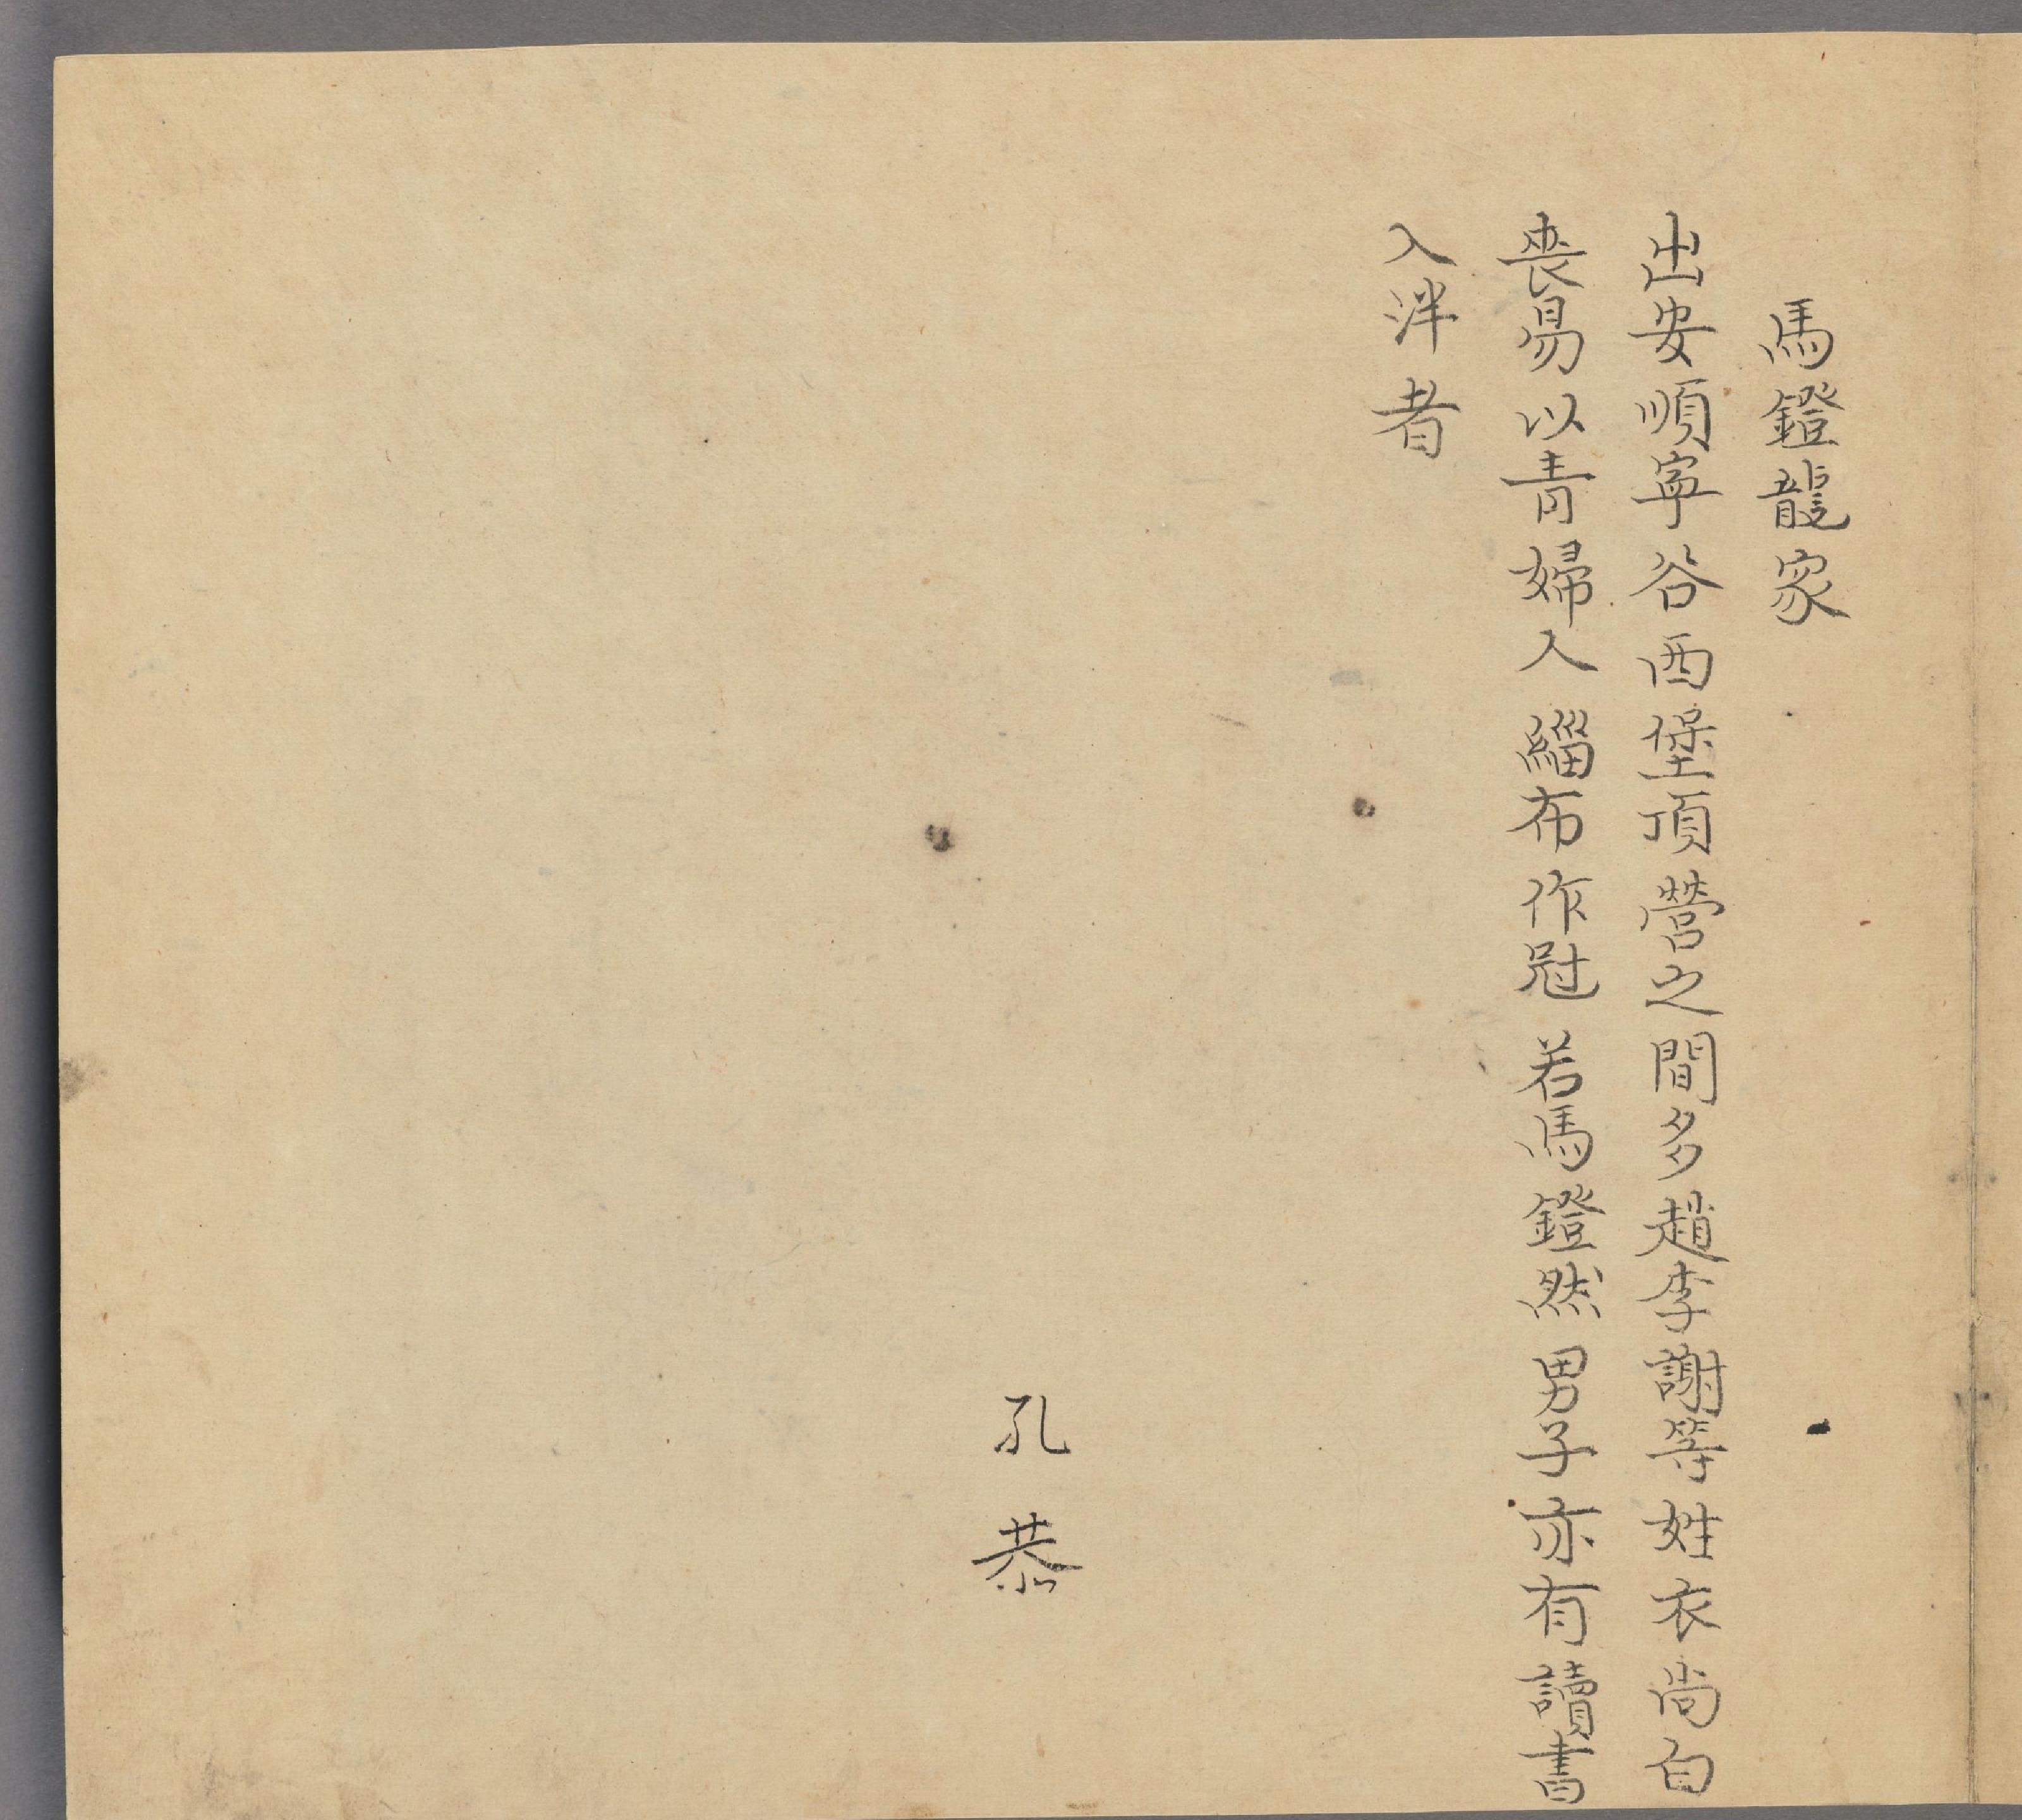 馬鐙龍家
出安順寧谷西堡頂營之間多趙李謝等姓衣尚白
喪易以青婦人緇布作冠若馬鐙然男子亦有讀書
入泮者
孔恭